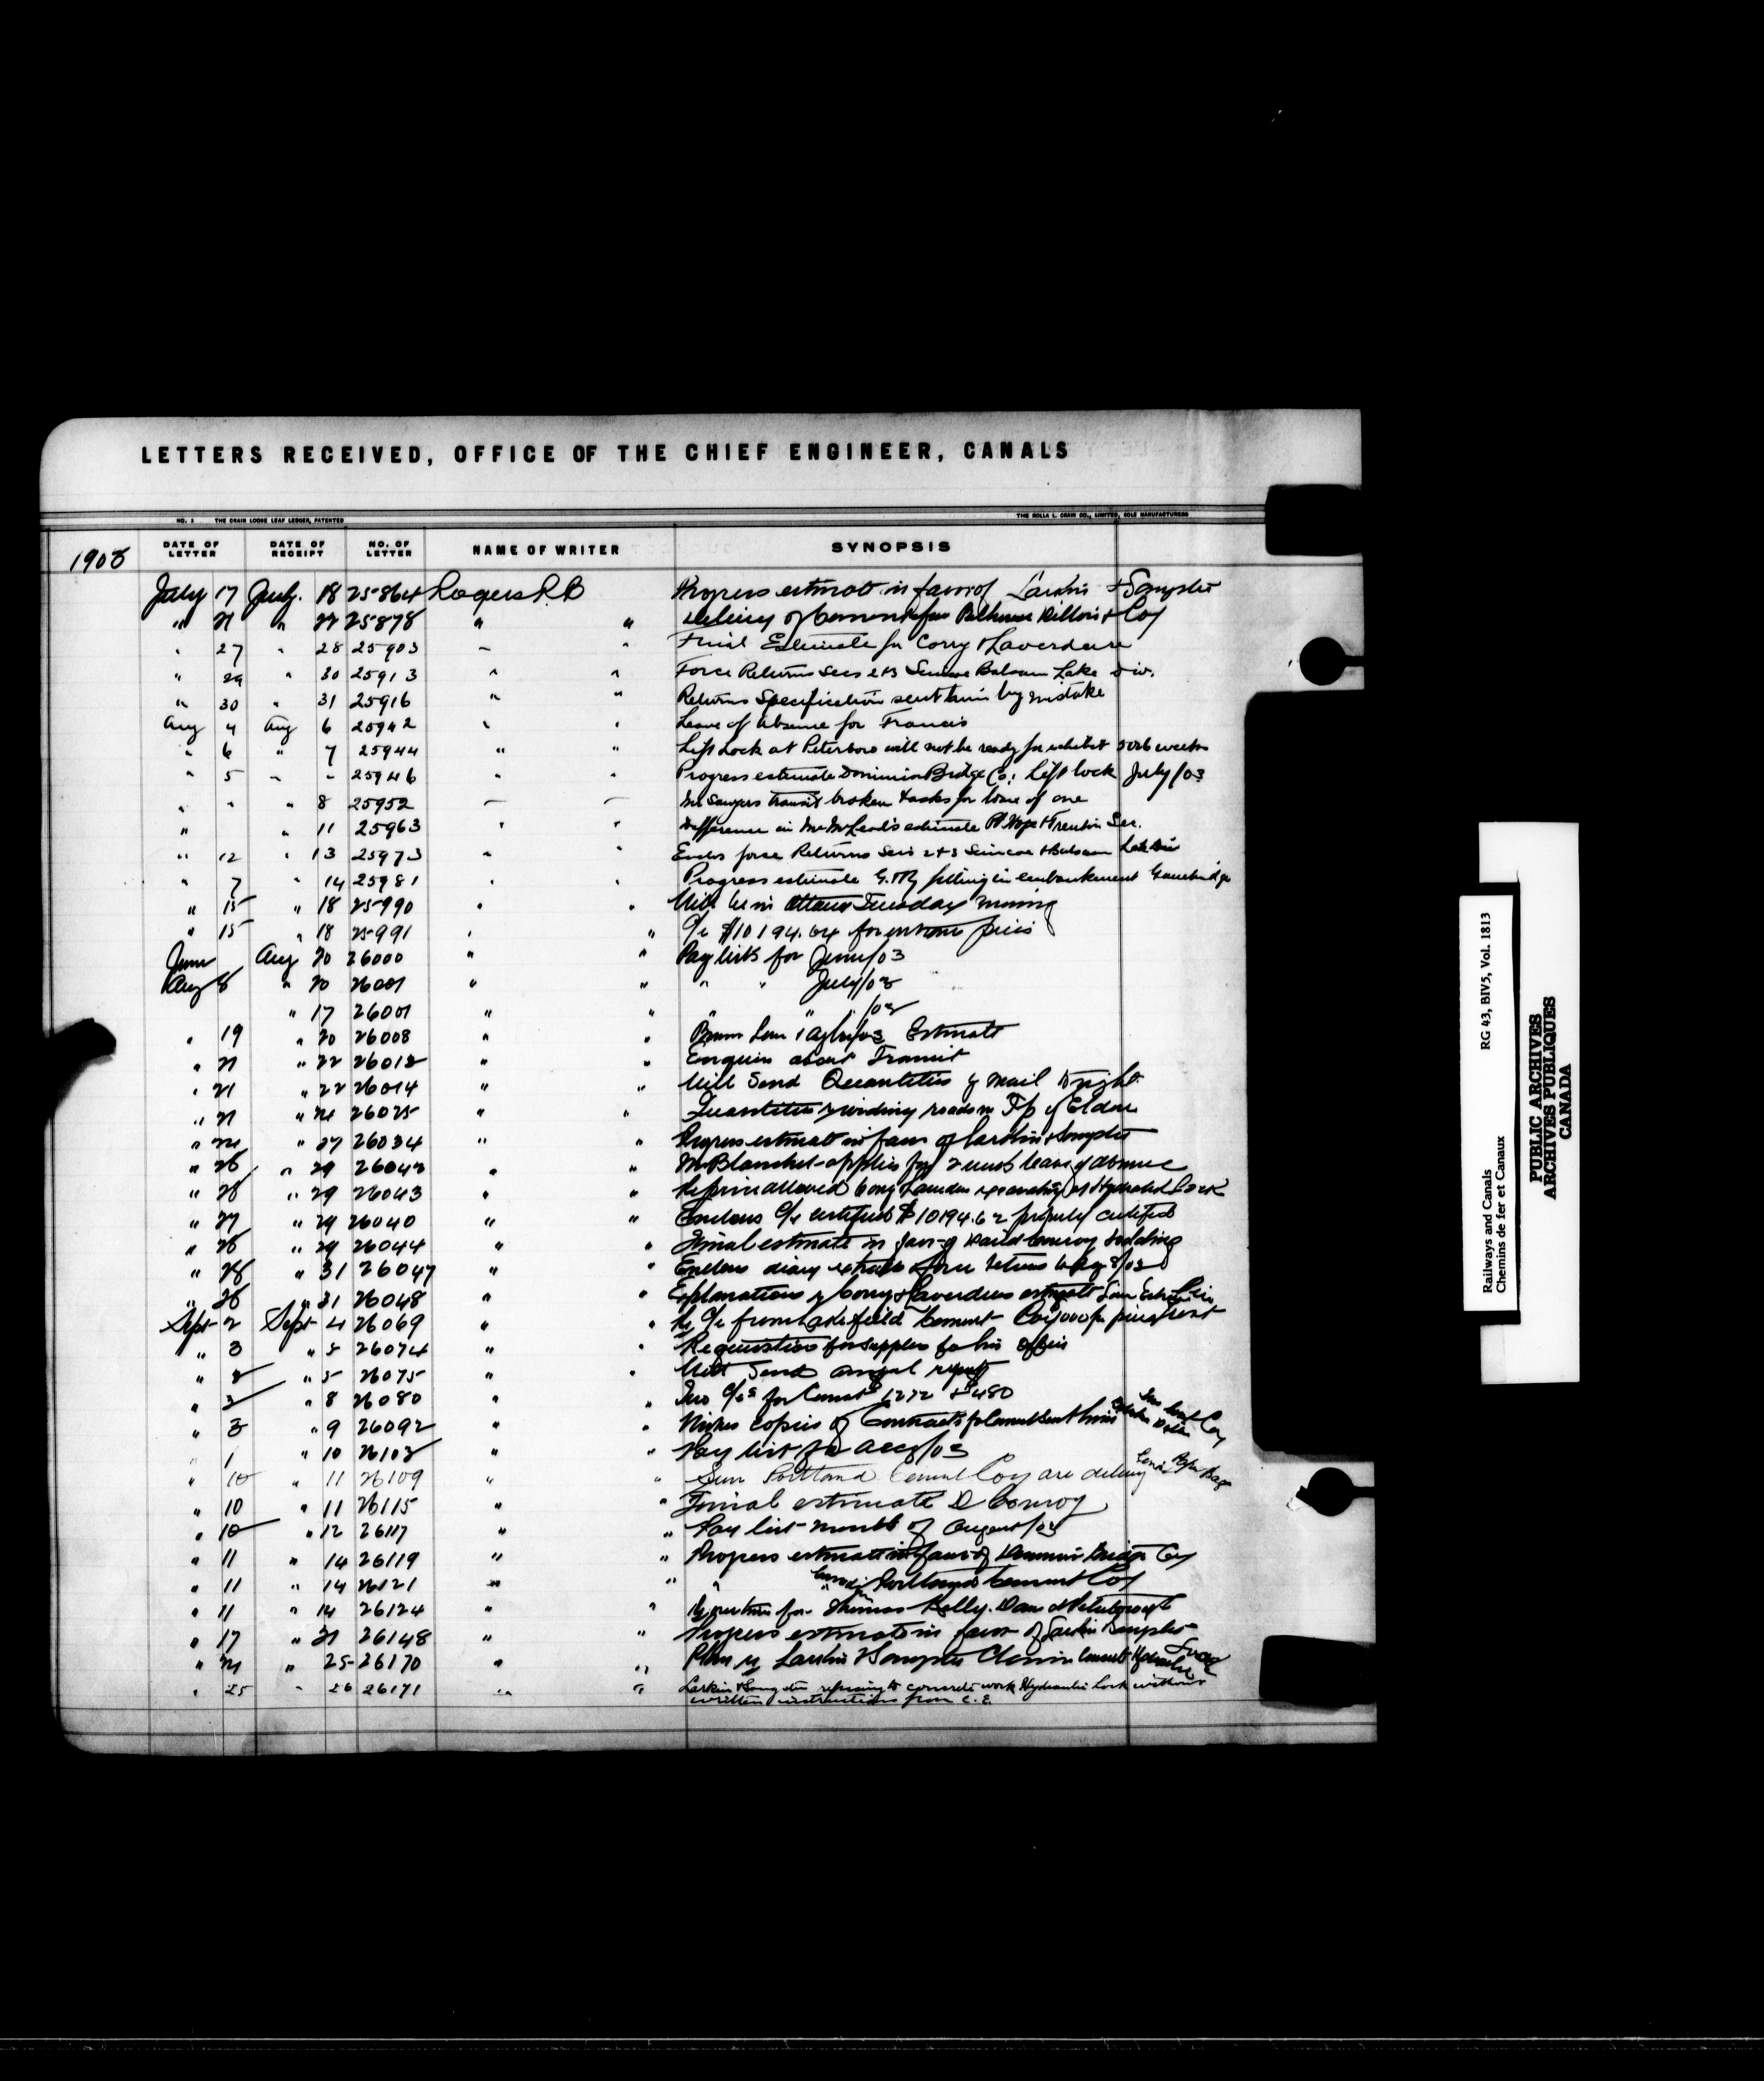 LETTERS RECEIVED, OFFICE OF THE CHIEF ENGINEER, CANALS
NO. 3 THE CRAIN LOOSE LEAF LEDGER, PATENTED THE ROLLA L. CRAIN CO., LIMITED, SOLE MANUFACTURERS
1903 DATE OF LETTER DATE OF RECEIPT NO. OF LETTER NAME OF WRITER SYNOPSIS
July 17 July 18 25864 Rogers R B Progress estimate in favor of Larkin & Sangster
" 21 " 22 25878 " " Delivery of Cement from Bellhouse Dillon & Coy
" 27 " 28 25903 " " Final Estimate for Corry & Laverdure
" 29 " 30 25913 " " Force Returns Secs 2+3 Simcoe Balsam Lake Div.
" 30 " 31 25916 " " Returns Specification sent him by mistake
Aug 4 Aug 6 25942 " " Leave of Absence for Francis
" 6 " 7 25944 " " Lift Lock at Peterboro will not be ready for 5 or 6 weeks
" 5 " " 25946 " " Progress estimate Dominion Bridge Co: Lift lock July/03
" " " 8 25952 " " Mr Sawyers transit broken & asks for loan of one
" " 11 25963 " " Difference in Mr McLeod's estimate Pt Hope & Trenton Sec.
" 12 " 13 25973 " " Encls force Returns Secs 2+3 Simcoe & Balsam Lake Div
" 7 " 14 25981 " " Progress estimate G.T.Ry filling in embankment Gamebridge
" 15 " 18 25990 " " Will be in Ottawa Tuesday morning
" 15 " 18 25991 " " C/c $10194.64 for
June Aug 20 26000 " " Pay lists for June/03
Aug 8 " 20 26001 " " " " July/03
" 17 26001 " " " " " /03
" 19 " 20 26008 " " Estimate
" 21 " 22 26012 " " Enquires about Transit
" 21 " 22 26014 " " Will Send Quantities by mail to night
" 21 " 24 26025 " " Quantities roads in Tp of Eldon
" 24 " 27 26034 " " Progress estimate in favor of Larkin & Sangster
" 26 " 29 26042 " " Mr Blanchet applies for 2 weeks leave of absence
" 26 " 29 26043 " " allowed Corry & Laverdure excavating at Hydraulic Lock
" 27 " 29 26040 " " Encloses C/c certified $10194.62 properly certified
" 26 " 29 26044 " " Final estimate in favor of David Conroy Sodding
" 28 " 31 26047 " " Encloses diary extracts & force returns to Aug 8/03
" 26 " 31 26048 " " Explanations re Corry & Laverdures estimate
Sept 2 Sept 4 26069 " " Re C/c from Lakefield Cement Coy
" 3 " 5 26074 " " Requisition for supplies for his Office
" 2 " 5 26075 " " Will Send annual report
" 3 " 8 26080 " " Two C/cs for Cement $1272 + $480
" 3 " 9 26092 " " Wishes copies of Contracts for Cement sent him
" 1 " 10 26103 " " Pay list for Aug/03
" 10 " 11 26109 " " Sun Portland Cement Coy are
" 10 " 11 26115 " " Final estimate D Conroy
" 10 " 12 26117 " " Pay list month of August/03
" 11 " 14 26119 " " Progress estimate in favor of Dominion Bridge Coy
" 11 " 14 26121 " " " " Portland Cement Coy
" 11 " 14 26124 " " for Thomas Kelly. Dam at Peterborough
" 17 " 21 26148 " " Progress estimate in favor of Larkin & Sangster
" 24 " 25 26170 " " Larkin & Sangster Cement Hydraulic
" 25 " 26 26171 " " Larkin & Sangster refusing to concrete work Hydraulic Lock without
written instructions from C.E.
Railways and Canals RG 43, BIV5, Vol. 1813
Chemins de fer et Canaux
PUBLIC ARCHIVES
ARCHIVES PUBLIQUES
CANADA